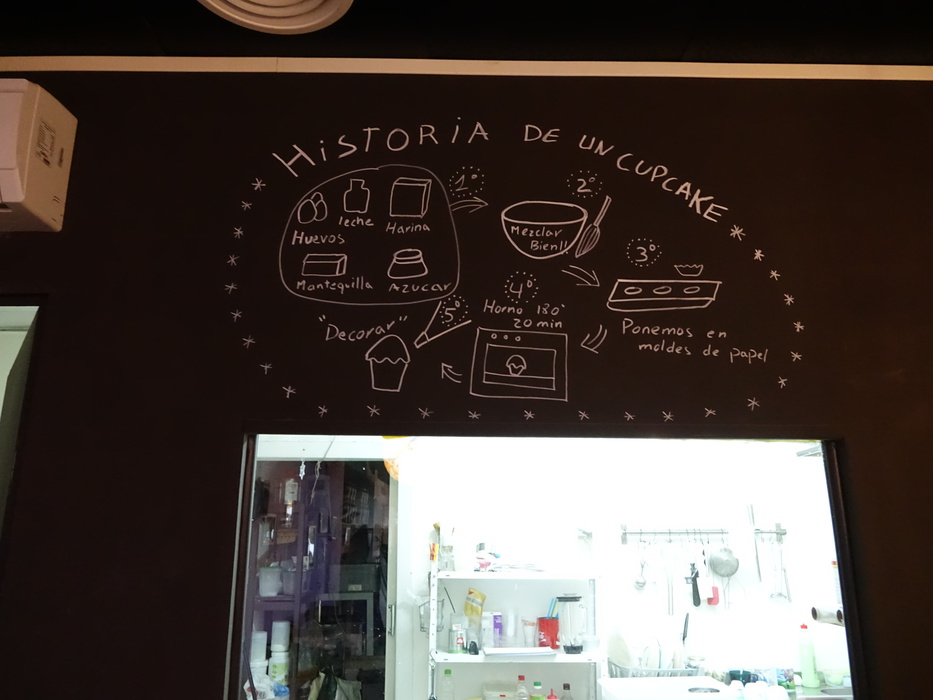 HiSTORiA DE UN CUPCAKE
1º
Huevos
leche
Harina
Mantequilla
Azucar
2º
Mezclar
Bien!!
3º
Ponemos en
moldes de papel
4º
Horno 180º
20 min
5º
"Decorar"